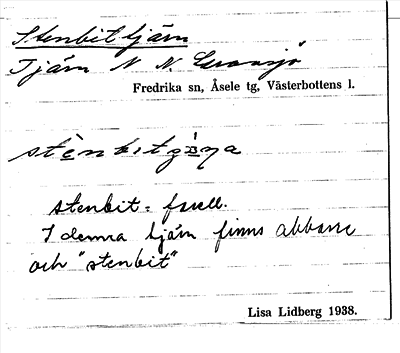 Stenbittjärn
Tjärn N N
Fredrika sn, Åsele tg, Västerbottens l.
stenbit = forell.
I denna tjärn finns abborre
och "stenbit"
Lisa Lidberg 1938.